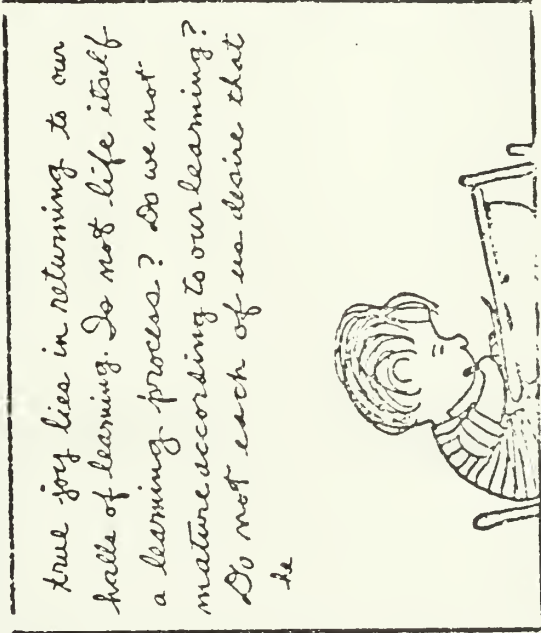 true joy lies in returning to our
halls of learning. Is not life itself
a learning process? Do we not
mature according to our learning?
Do not each of us desire that
he